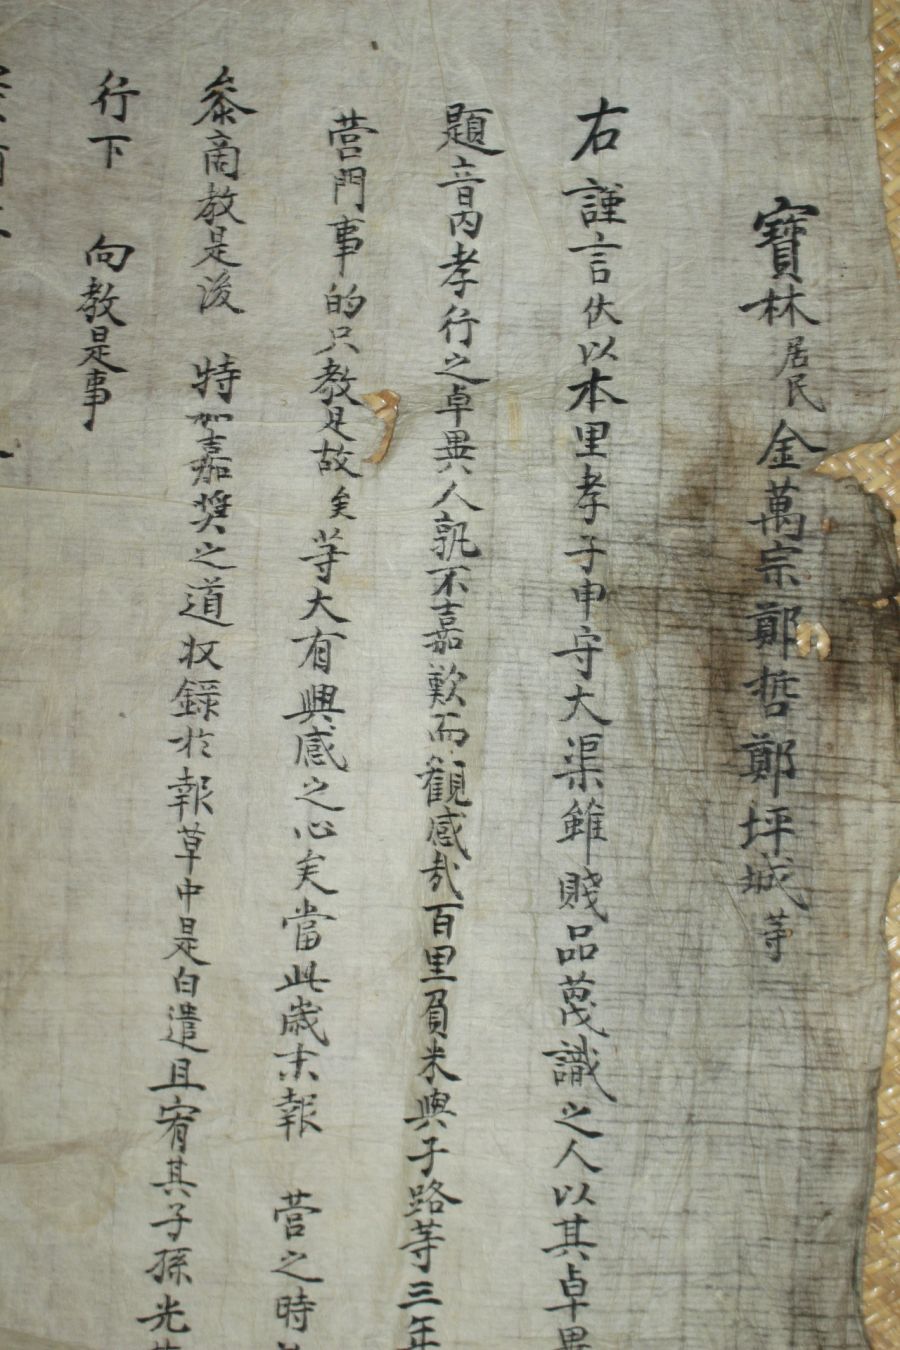 寶林居民金萬宗鄭哲鄭坪城等
右謹言伏以本里孝子申守大渠雖賤品蔑識之人以其卓異
題音內孝行之卓異人孰不嘉歎而觀感哉百里負米與子路等三年
營門事的只教是故矣等大有興感之心矣當此歲末報 營之時
叅商教是後 特加嘉奬之道収錄於報草中是白遣且宥其子孫光
行下 向教是事